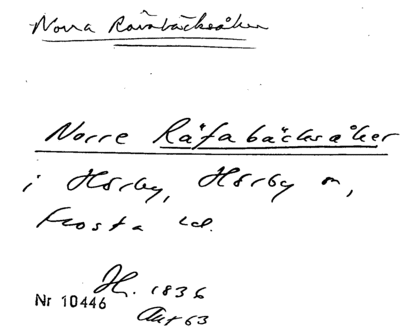 Norra Rävabäcksåker
Norre Räfabäcksåker
i Hörby, Hörby sn,
Frosta hd.
Jfr. 1836
Akt 63
Nr 10446